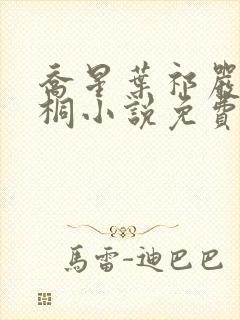 喬星葉祁嚴
桐小說免費
馬雷-迪巴巴